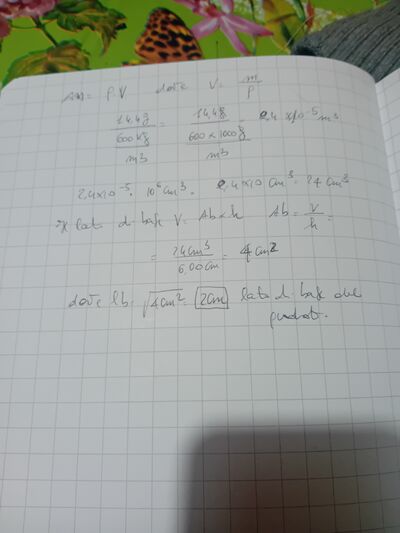 m = ρ·V dove V = m/ρ
14,4g / 600 kg/m3 = 14,4g / 600 x 1000g/m3 = 2,4 x10^-5 m3
2,4x10^-5 · 10^6 cm3 = 2,4x10 cm3 = 24 cm3
x lato di base V = Ab x h Ab = V/h =
= 24cm3 / 6,00cm = 4cm2
dove lb = √4cm2 = 2cm lato di base del